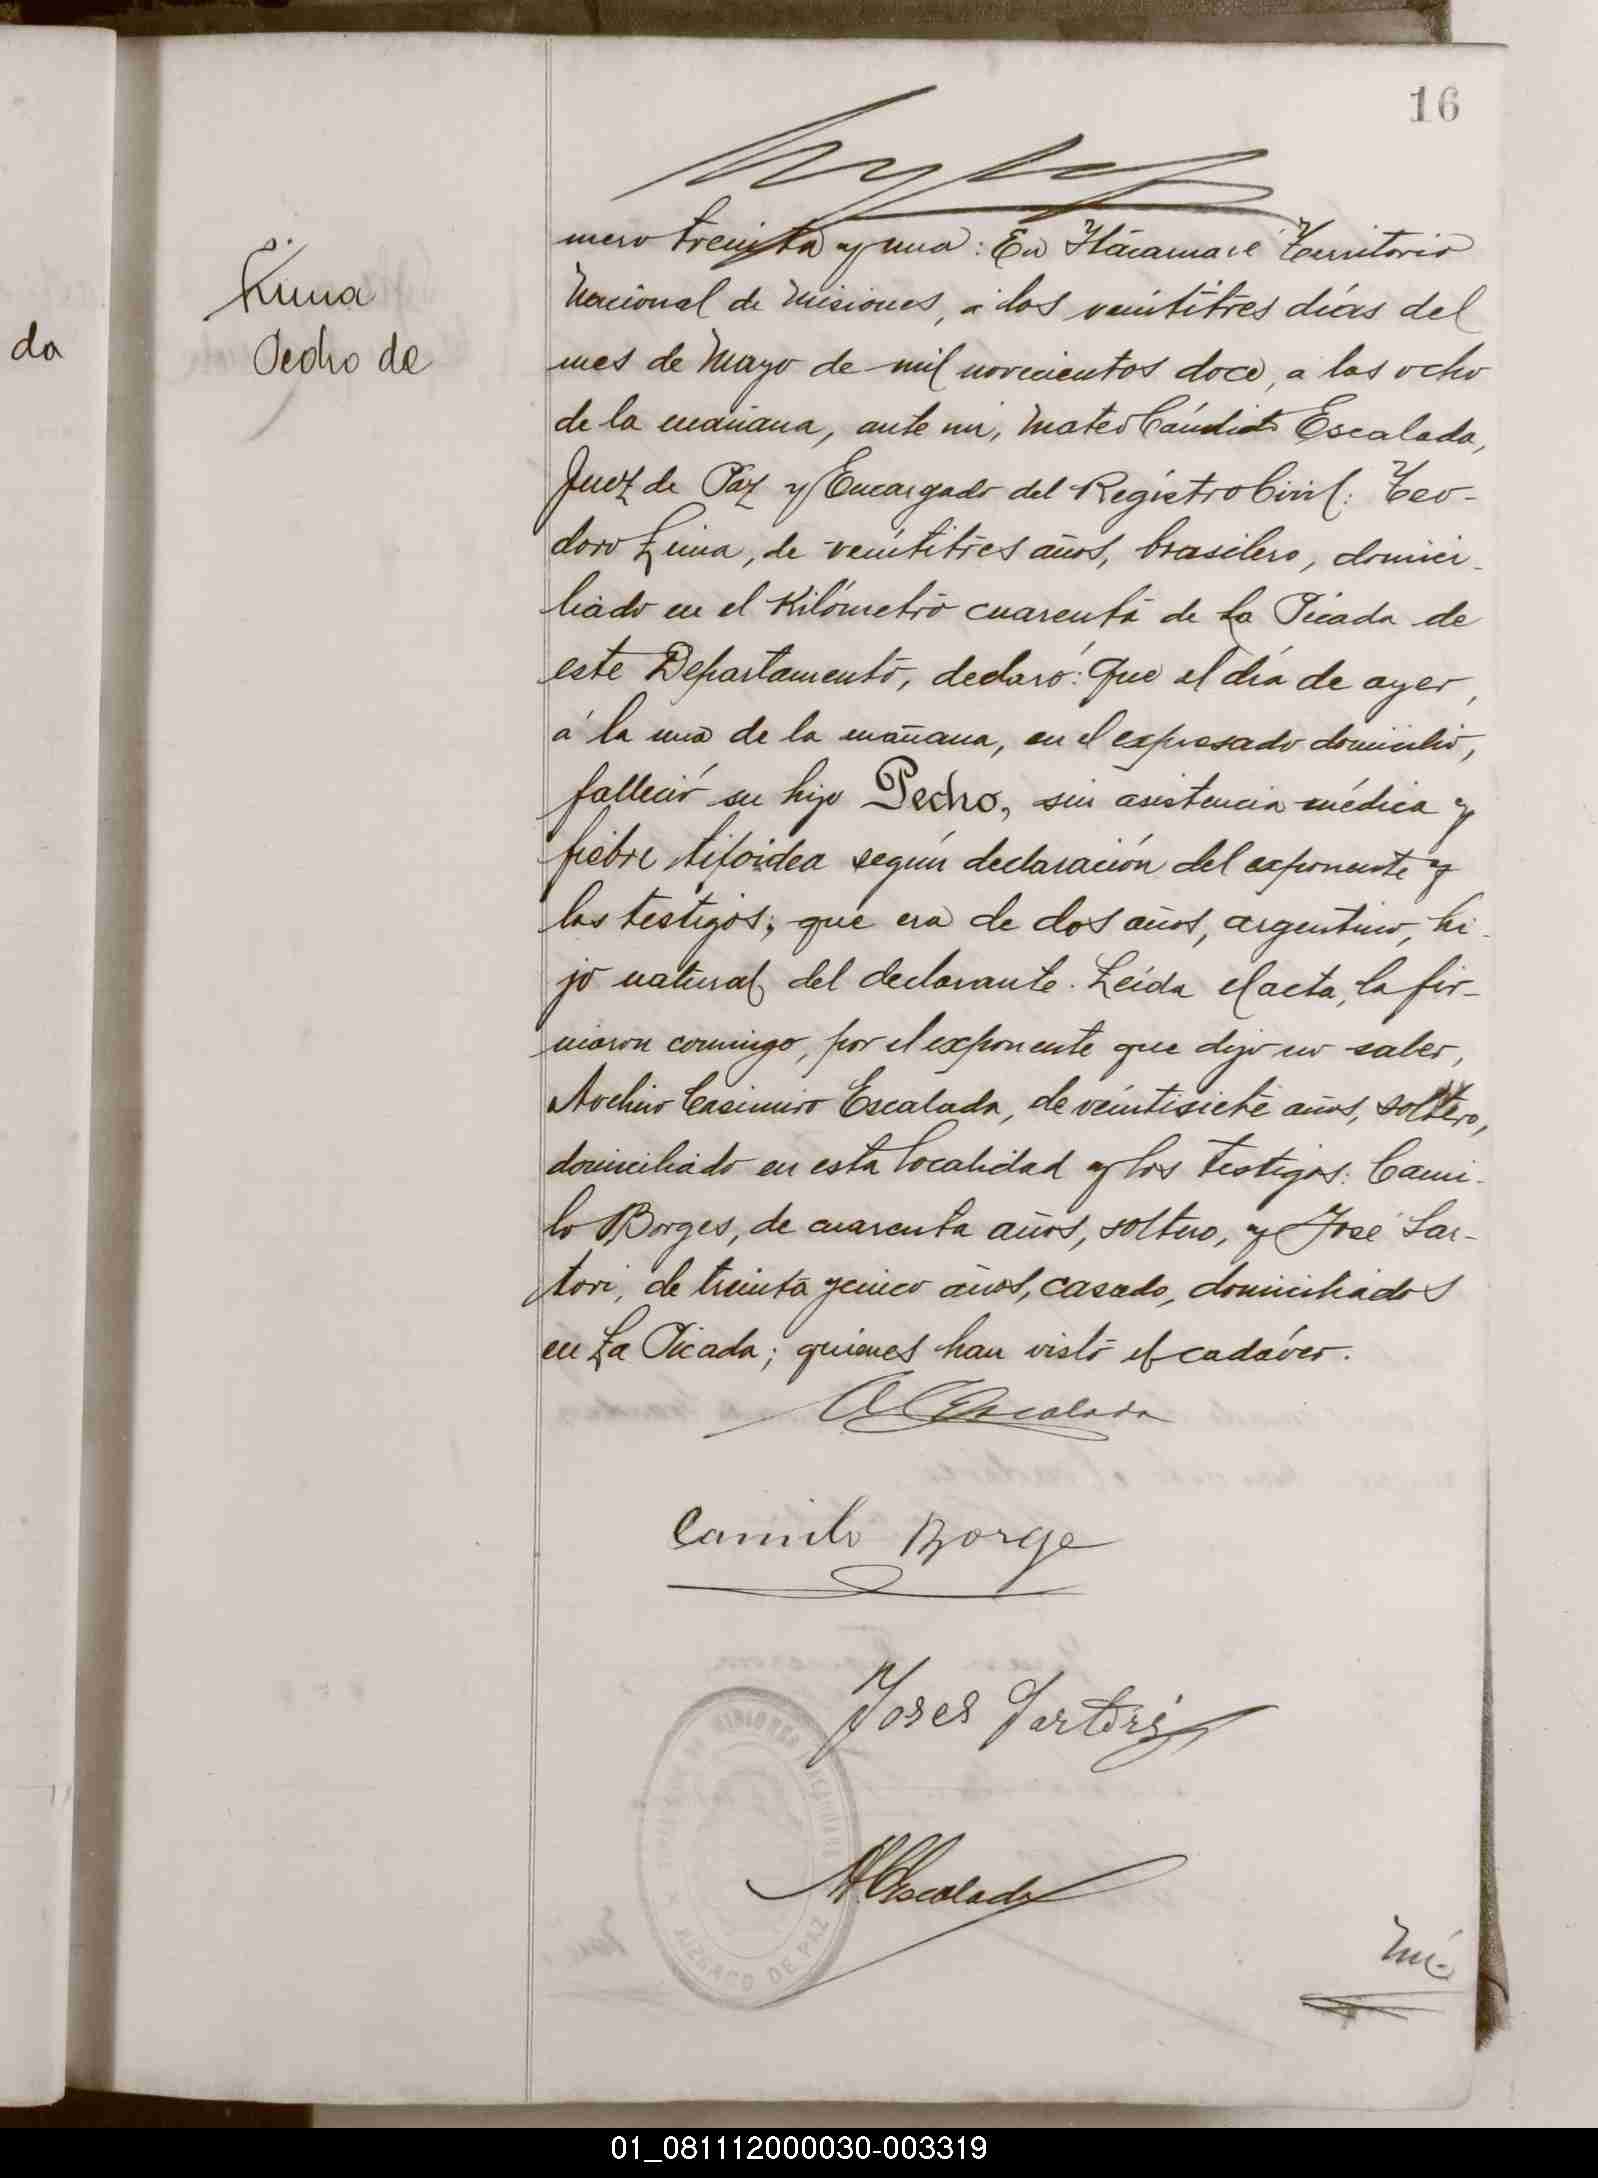 16
da
Lima
Pedro de
mero treinta y una: En Itacaruaré Territorio
Nacional de Misiones, á los veintitres días del
mes de Mayo de mil novecientos doce, a las ocho
de la mañana, ante mi, Mateo Cándido Escalada,
Juez de Paz y Encargado del Registro Civil: Teo-
doro Lima, de veintitres años, brasilero, domici-
liado en el Kilómetro cuarenta de La Picada de
este Departamento, declaró: Que el día de ayer,
á la una de la mañana, en el expresado domicilio,
falleció su hijo Pedro, sin asistencia médica y
fiebre tifoidea según declaración del exponente y
los testigos; que era de dos años, argentino, hi-
jo natural del declarante. Leída el acta, la fir-
maron conmigo, por el exponente que dijo no saber,
Avelino Casimiro Escalada, de veintisiete años, soltero,
domiciliado en esta localidad y los testigos: Cami-
lo Borges, de cuarenta años, soltero, y José Sar-
tori, de treinta y cinco años, casado, domiciliados
en La Picada; quienes han visto el cadáver.
A C Escalada
Camilo Borge
Joses Sartori
M. C. Escalada
JUZGADO DE PAZ
Nú-
01_081112000030-003319